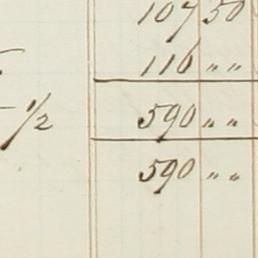 107 50
116 " "
1/2 590 " "
590 " "